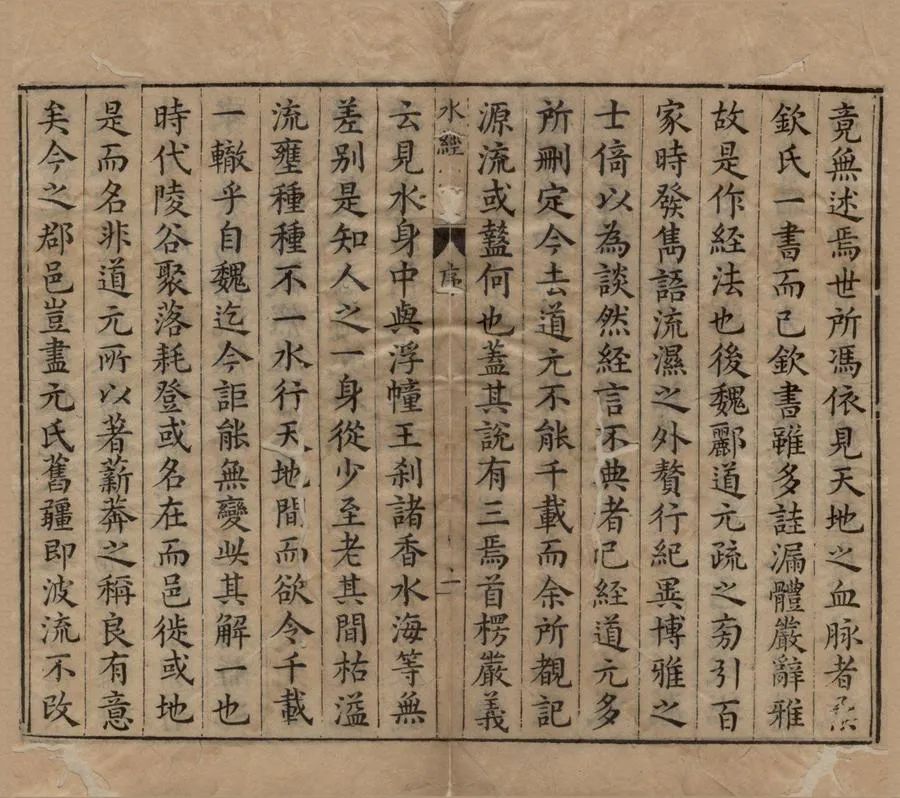 竟無述焉世所馮依見天地之血脉者
欽氏一書而已欽書雖多詿漏體嚴辭雅
故是作經法也後魏酈道元疏之㫄引百
家時發雋語流濕之外贅行紀異博雅之
士倚以為談然經言不典者已經道元多
所刪定今去道元不能千載而余所覩記
源流或盭何也蓋其說有三焉首楞嚴義
水經 序 二
云見水身中與浮幢王刹諸香水海等無
差别是知人之一身從少至老其間枯溢
流壅種種不一水行天地間而欲令千載
一轍乎自魏迄今詎能無變此其解一也
時代陵谷聚落耗登或名在而邑徙或地
是而名非道元所以著薪莽之稱良有意
矣今之郡邑豈盡元氏舊疆即波流不改